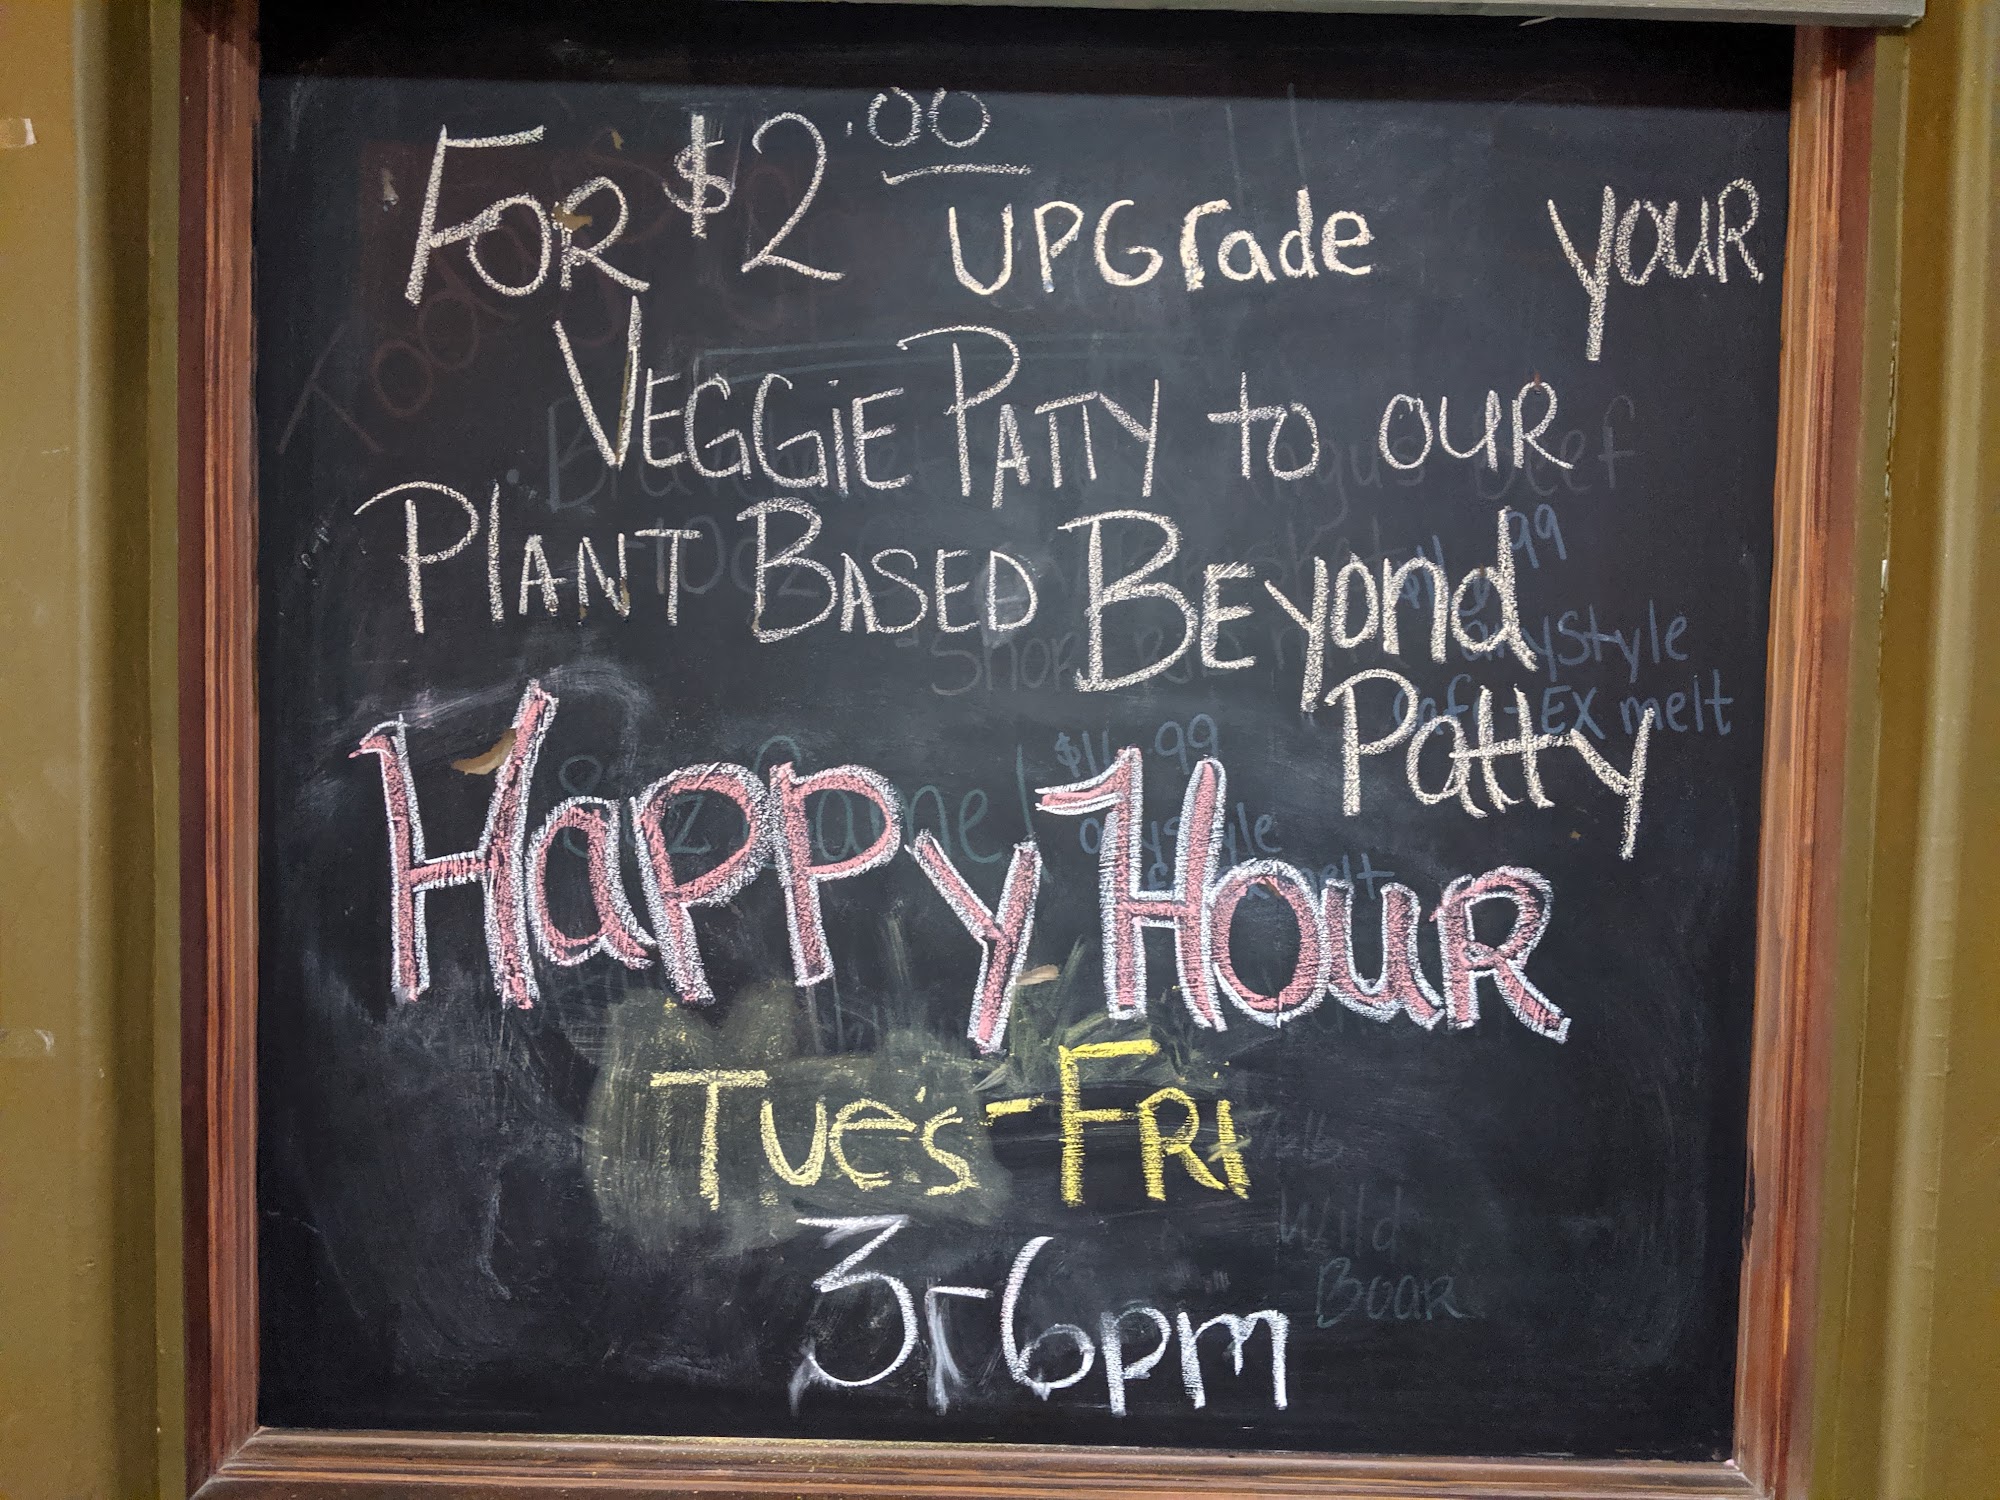 For $2.00 UPGrade YOUR
VEGGiE PATTY to OUR
PlANT BASED BEyond
Patty
HaPPy HOuR
TUe's-FRi
3-6pm
Wild
Boar